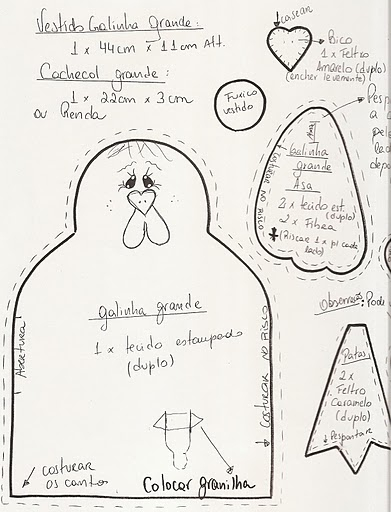 Vestido Galinha grande:
1 x 44cm x 11cm Alt.
Cachecol grande:
1 x 22cm x 3cm
ou Renda
casear
Bico
1 x Feltro
Amarelo (duplo)
(encher levemente)
Fuxico
vestido
Galinha
grande
Asa
2 x tecido est.
(duplo)
2 x Fibra
(Riscar 1 x p/ cada
lado)
COSTURAR NO RISCO
Pesp
a
pel
lad
depo
galinha grande
1 x tecido estampado
(duplo)
Abertura
COSTURAR NO RISCO
costurar
os cantos
Colocar granilha
Observação: Pode
Patas
2x
Feltro
Caramelo
(duplo)
Pespontar